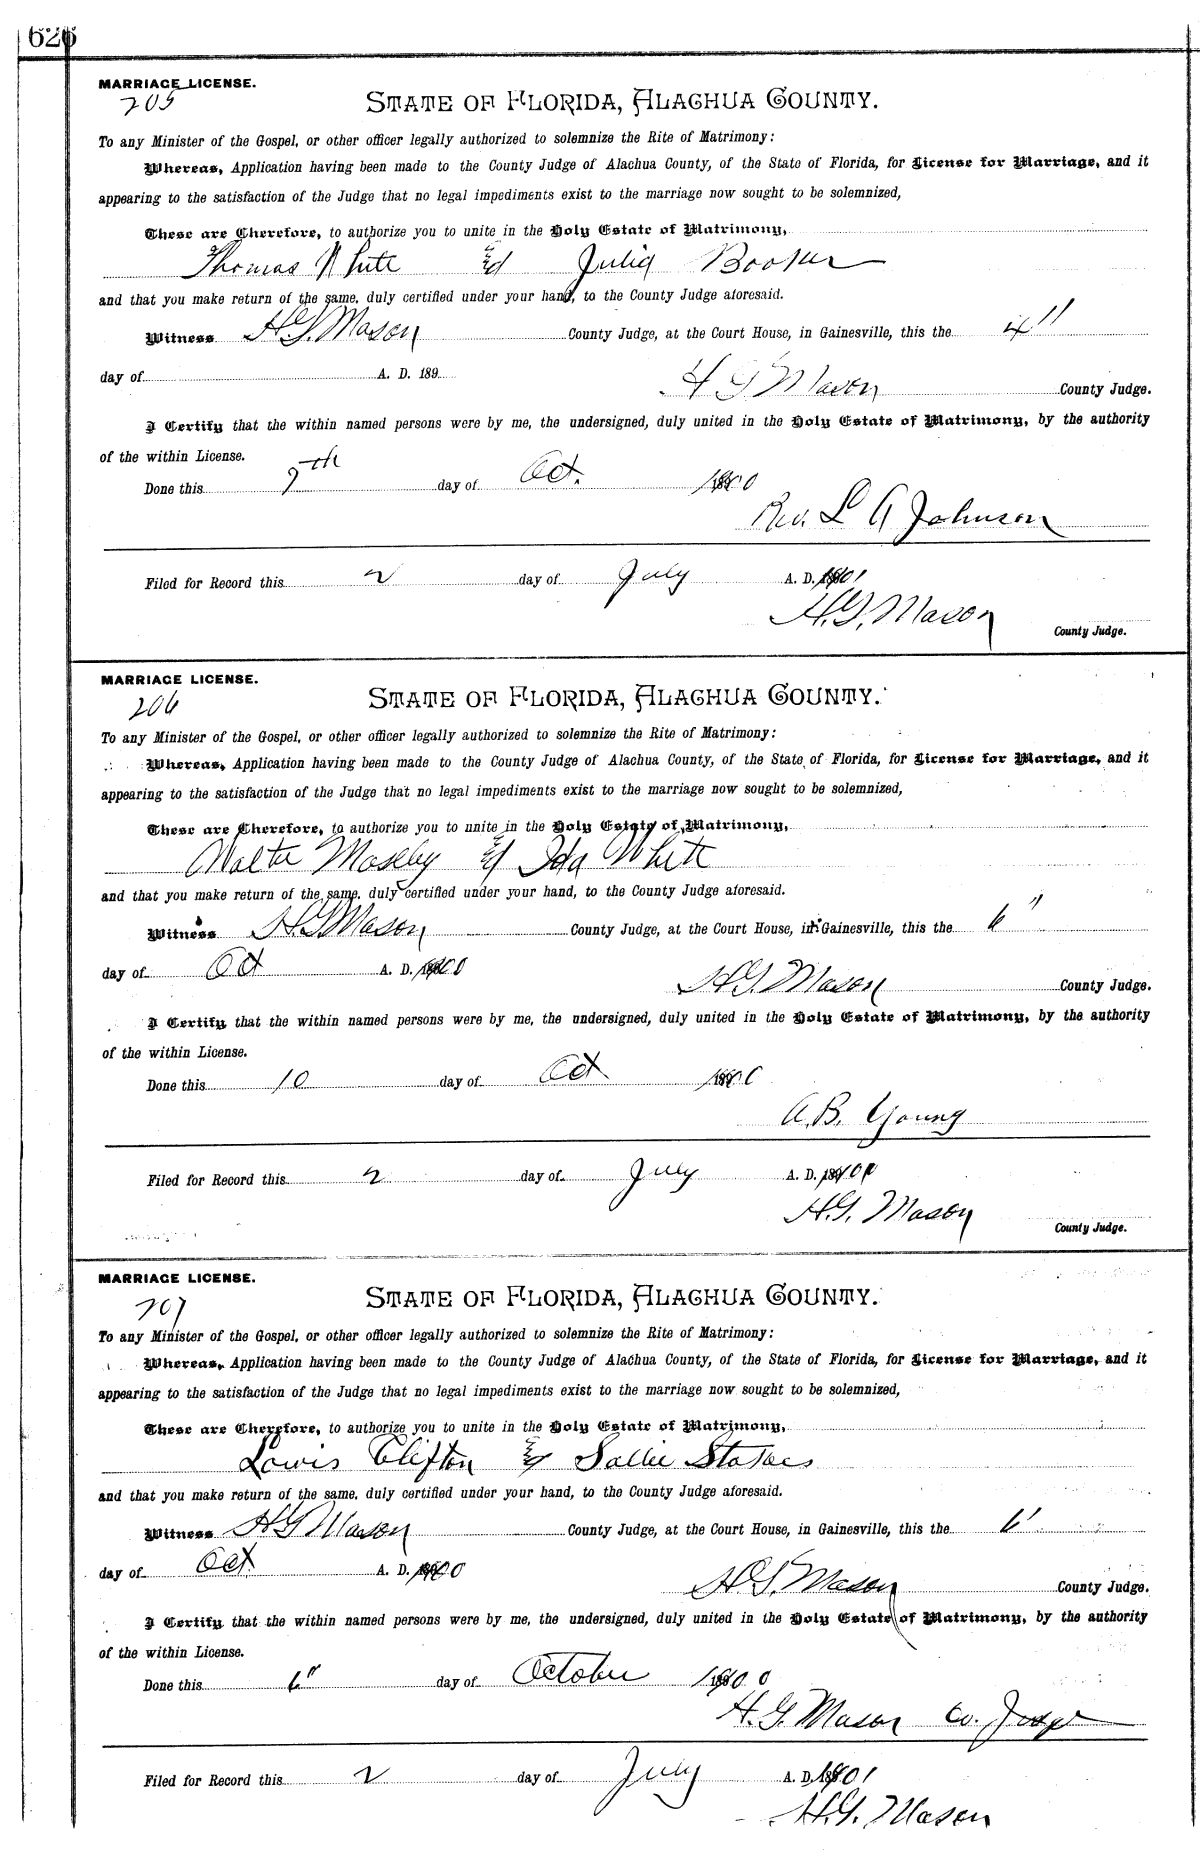 626
MARRIAGE LICENSE.
205
STATE OF FLORIDA, ALACHUA COUNTY.
To any Minister of the Gospel, or other officer legally authorized to solemnize the Rite of Matrimony:
Whereas, Application having been made to the County Judge of Alachua County, of the State of Florida, for License for Marriage, and it
appearing to the satisfaction of the Judge that no legal impediments exist to the marriage now sought to be solemnized,
These are Therefore, to authorize you to unite in the Holy Estate of Matrimony,
Thomas White & Julia Booker
and that you make return of the same, duly certified under your hand, to the County Judge aforesaid.
Witness H.G. Mason County Judge, at the Court House, in Gainesville, this the 4"
day of A. D. 189
H G Mason County Judge.
I Certify that the within named persons were by me, the undersigned, duly united in the Holy Estate of Matrimony, by the authority
of the within License.
Done this 7th day of Oct. 1900
Rev. L A Johnson
Filed for Record this 2 day of July A. D. 1901
H.G. Mason
County Judge.
MARRIAGE LICENSE.
206
STATE OF FLORIDA, ALACHUA COUNTY.
To any Minister of the Gospel, or other officer legally authorized to solemnize the Rite of Matrimony:
Whereas, Application having been made to the County Judge of Alachua County, of the State of Florida, for License for Marriage, and it
appearing to the satisfaction of the Judge that no legal impediments exist to the marriage now sought to be solemnized,
These are Therefore, to authorize you to unite in the Holy Estate of Matrimony,
Walter Moseby & Ida White
and that you make return of the same, duly certified under your hand, to the County Judge aforesaid.
Witness H.G. Mason County Judge, at the Court House, in Gainesville, this the 6"
day of Oct A. D. 1900
H.G. Mason County Judge.
I Certify that the within named persons were by me, the undersigned, duly united in the Holy Estate of Matrimony, by the authority
of the within License.
Done this 10 day of Oct 1900
A.B. Young
Filed for Record this 2 day of July A. D. 1901
H.G. Mason
County Judge.
MARRIAGE LICENSE.
207
STATE OF FLORIDA, ALACHUA COUNTY.
To any Minister of the Gospel, or other officer legally authorized to solemnize the Rite of Matrimony:
Whereas, Application having been made to the County Judge of Alachua County, of the State of Florida, for License for Marriage, and it
appearing to the satisfaction of the Judge that no legal impediments exist to the marriage now sought to be solemnized,
These are Therefore, to authorize you to unite in the Holy Estate of Matrimony,
Lowis Clifton & Sallie Stokes
and that you make return of the same, duly certified under your hand, to the County Judge aforesaid.
Witness H G Mason County Judge, at the Court House, in Gainesville, this the 6'
day of Oct. A. D. 1900
H.G. Mason County Judge.
I Certify that the within named persons were by me, the undersigned, duly united in the Holy Estate of Matrimony, by the authority
of the within License.
Done this 6" day of October 1900
H. G. Mason Co. Judge
Filed for Record this 2 day of July A. D. 1901
H.G. Mason